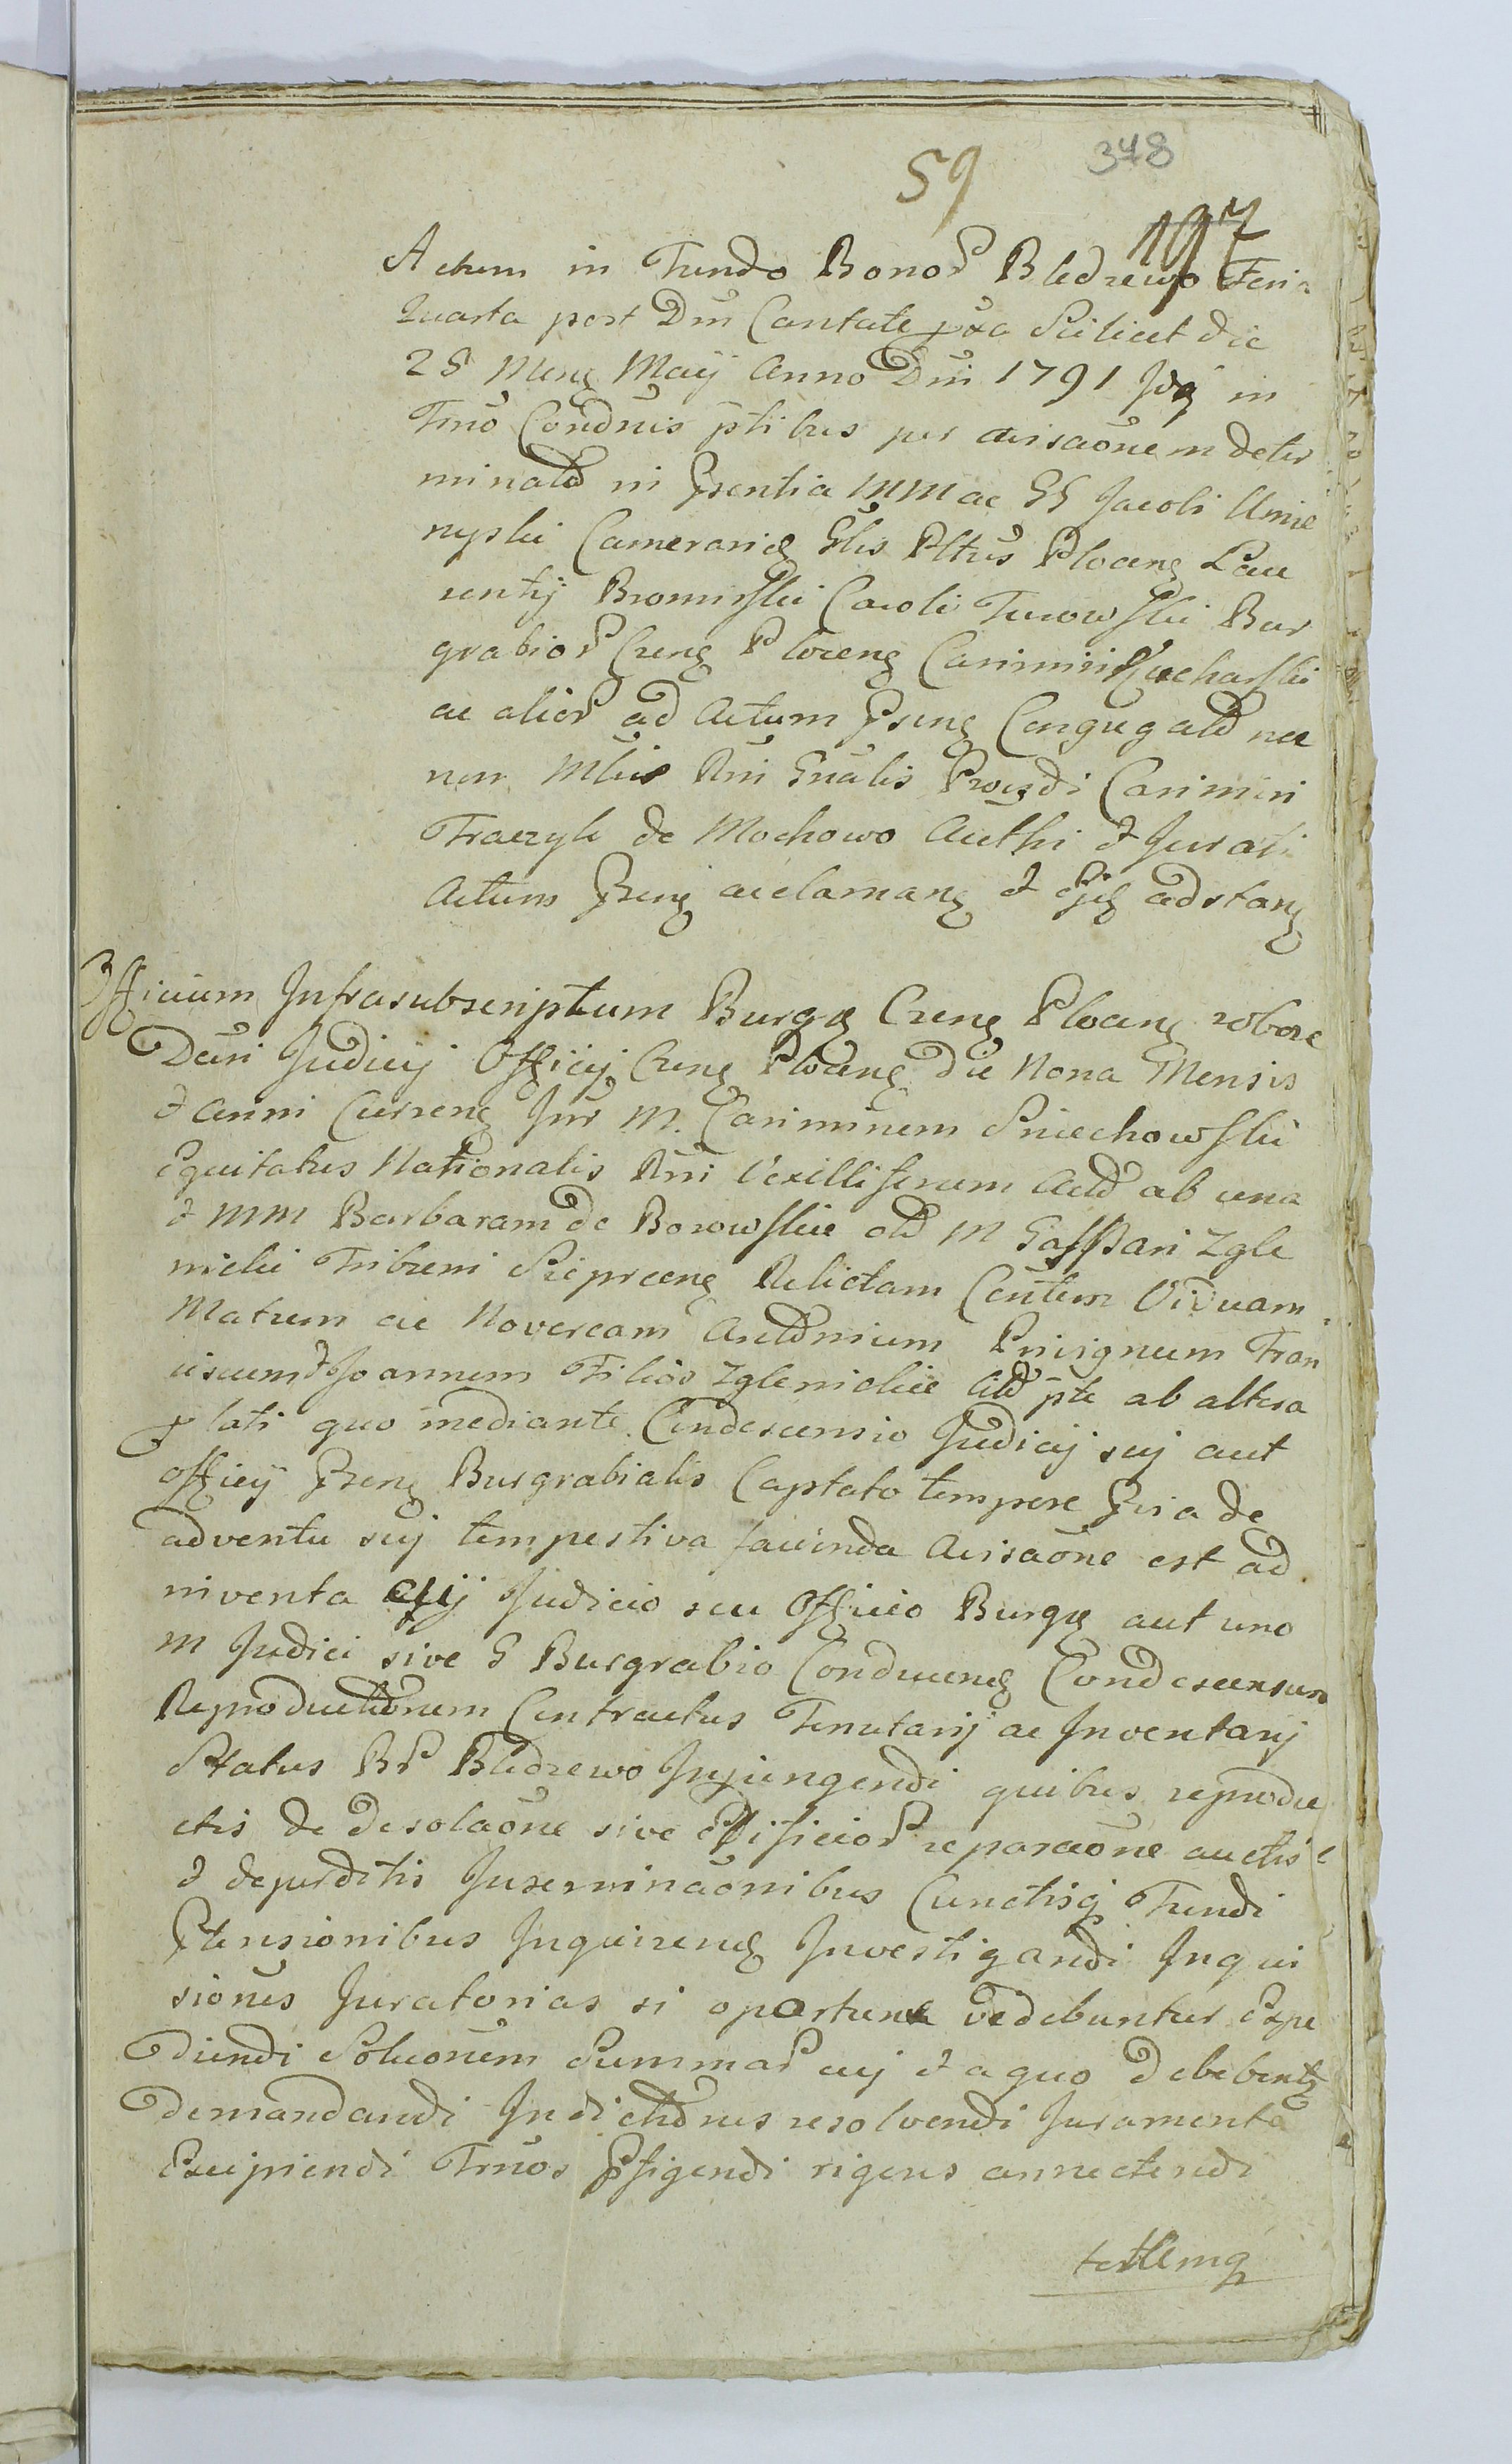 59 348
197
Actum in Fundo Bonor Bledzewo Feria
Quarta post Dnī Cantate pxa Scilicet die
25 Mens Maij Anno Dni 1791 Idq in
Tmo Condnis ptibus per avisaōnem deter
minato in Psentia MM ac GG Jacobi Umie
nyski Camerarij Glis Pltūs Plocens Lau
rentij Bromirski Caroli Turowski Bur
grabior Crens Plocens Casimiri Kucharski
ac alior ad Actum Psens Congregator nec
non Mlis Rni Gnālis Providi Casimiri
Fraczyk de Mochowo Authi & Jurati
Actum Psens acclamans & ejs adstans
Officium Infrasubscriptum Burgle Crens Plocens robore
Dcti Judicij Officij Crens Plocens die Nona Mensis
& anni Currens Inr M. Casimirum Sniechowski
Equitatus Nationalis Rni Vexilliferum Act ab una
& MM Barbaram de Borowskie olim M Gasspari Zgle
nicki Tribuni Sieprcens Relictam Contem Viduam
Matrem ac Novercam Antonium Privignum Fran
ciscum & Joannem Filios Zglenickie Cit pte ab altera
lati quo mediante Condescensio Judicij sui aut
officij Psens Burgrabialis Captato tempore Pvia de
adventu suj tempestiva facienda Avisaōne est ad
inventa cuij Judicio seu Officio Burgle aut uno
M Judici sive G Burgrabio Conducens Condescensum
Reproductionem Contractus Tenutarij ac Inventarij
Status Br Bledzewo Injungendi quibus reprodu
ctis de Desolaōne sive Edificior reparaōne auctis
& deperditis Inseminaōnibus Cunctisq Fundi
Ptensionibus Inquirens Investigandi Inqui
siones Juratorias si oportune videbuntur Expe
diendi Soluōnem Summar cuj & a quo Debebent
Demandandi Indictiones resolvendi Juramenta
Excipiendi Tmos Pfigendi rigens annectendi